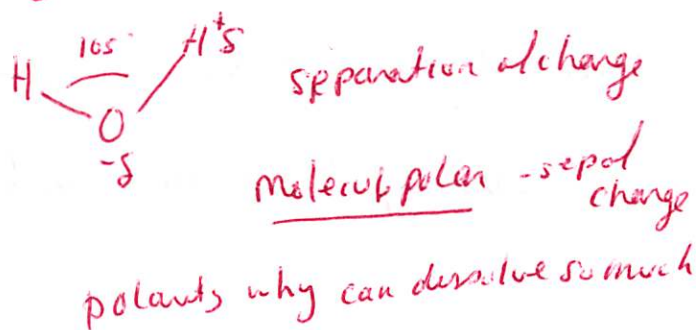 105°
H H⁺δ
O
-δ
separation of charge
molecule polar - sep of
charge
polarity why can dissolve so much